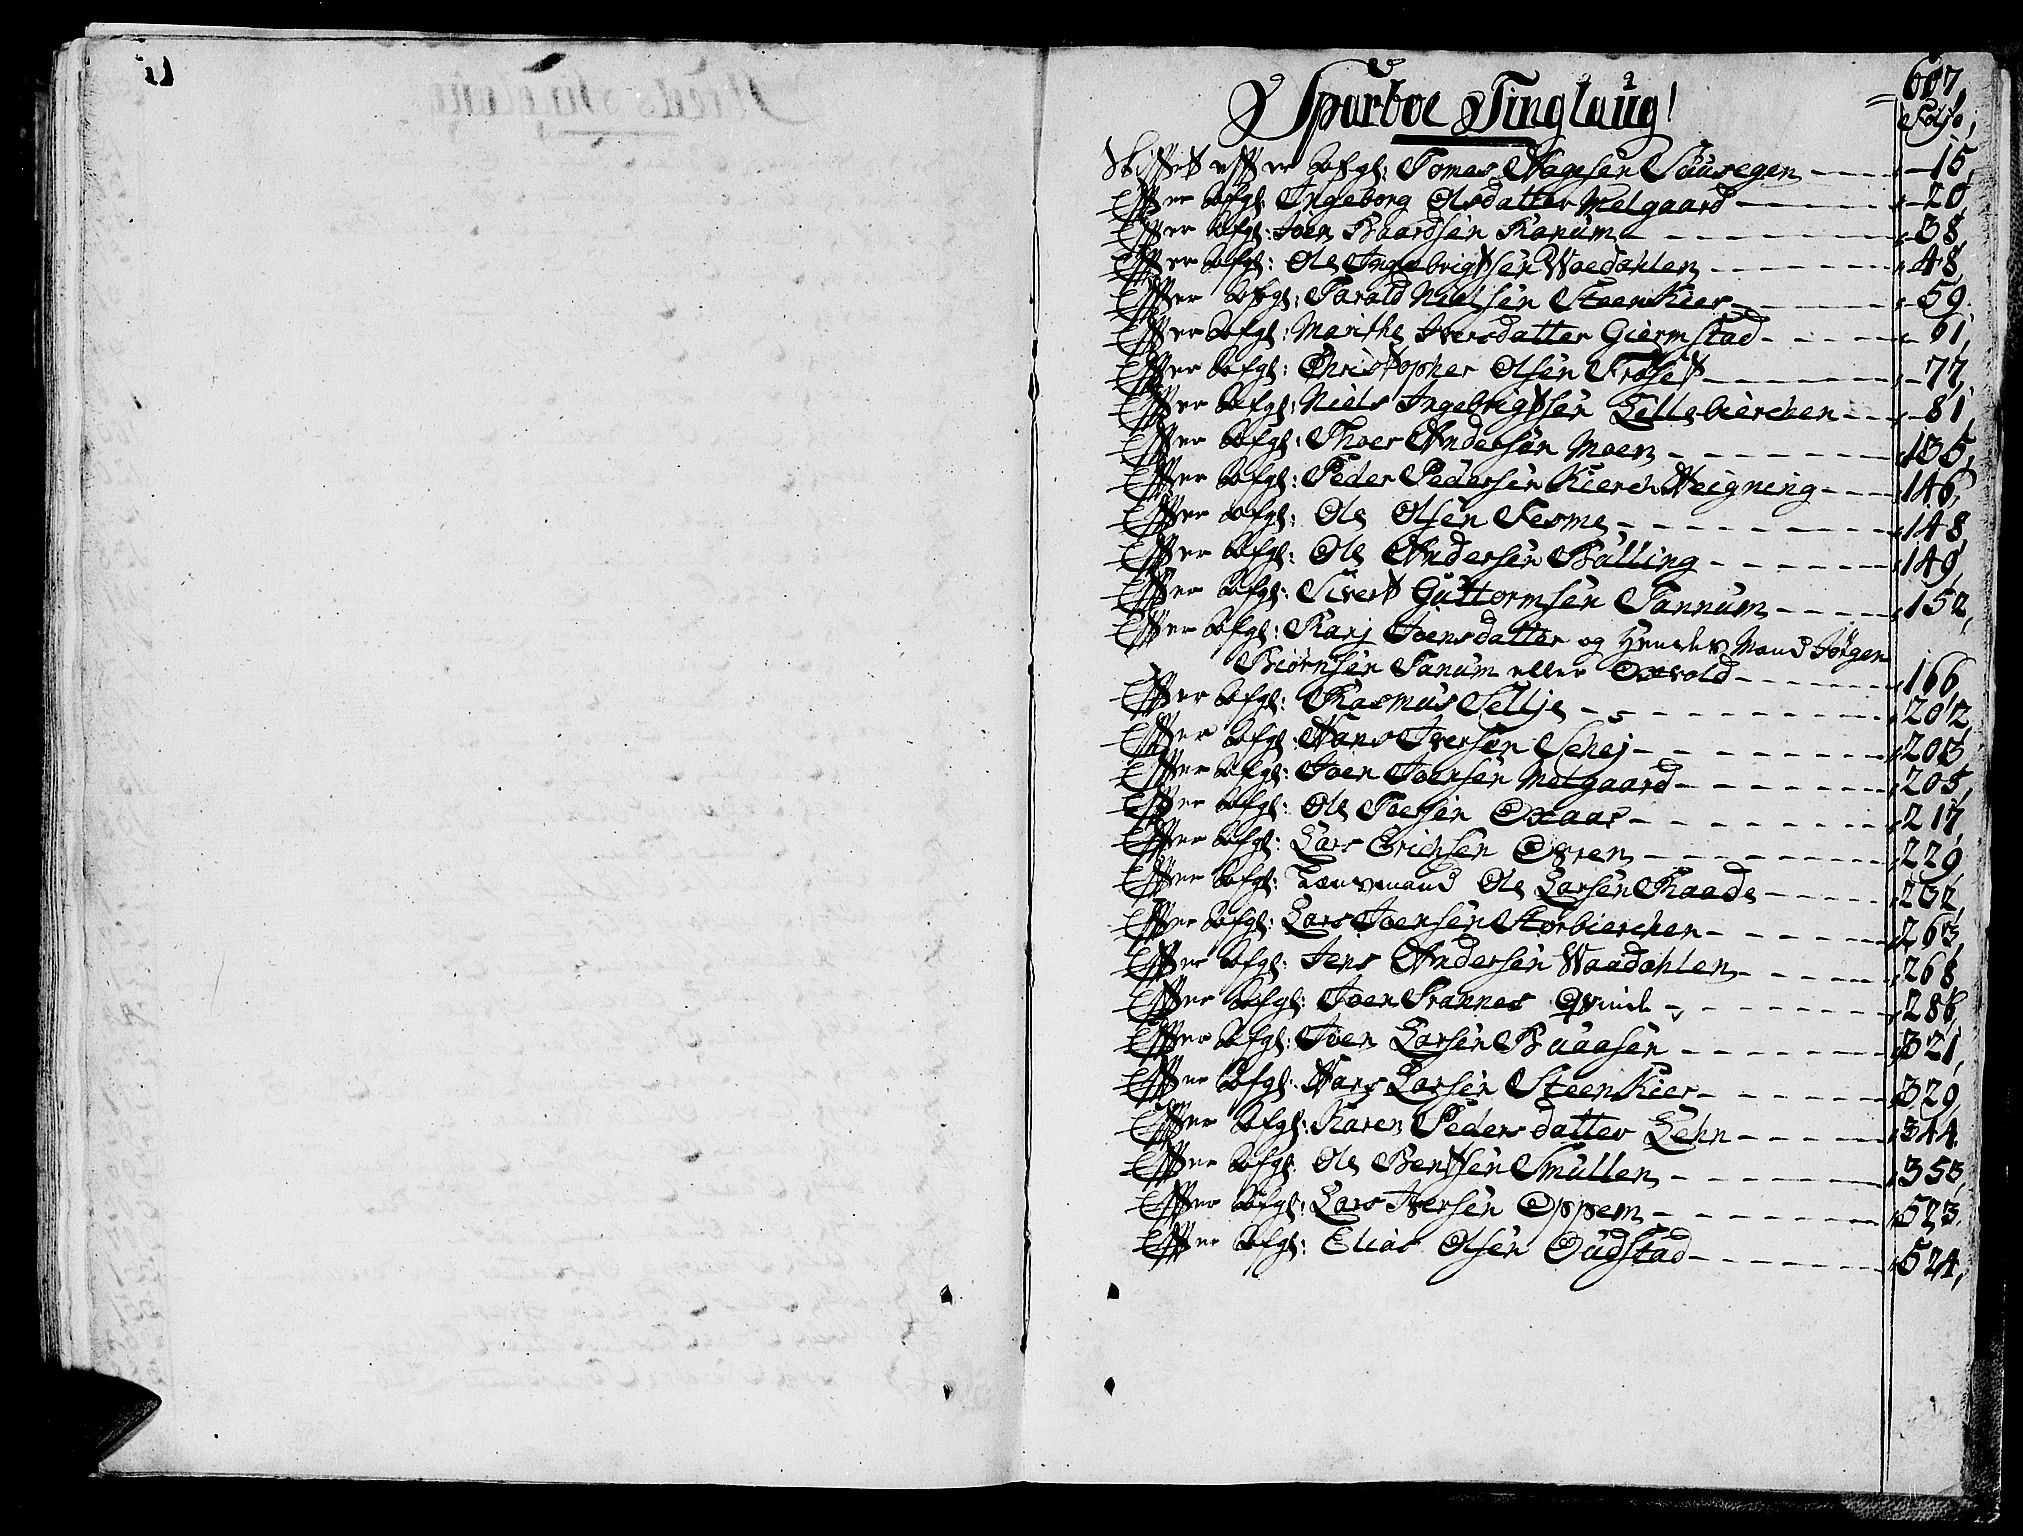 607,
Sparboe Tinglaug!
Folio,
Skiftet effter Afgl: Tomas Hagesen Sausegen 15,
Effter Afgl: Ingeborg Olsdatter Melgaard 20
Effter Afgl: Joen Baardsen Hanum 38
Effter Afgl: Ole Ingebrigtsen Woedahlen 48,
Effter Afgl: Harald Nielsen SteenKier 59
Effter Afgl: Marithe Iversdatter Giermstad 61,
Effter Afgl: Christopher Olsen Frøset 77,
Effter Afgl: Niels Ingebrigtsen Lillebierchen 81
Effter Afgl: Thoer Andersen Moen 135,
Effter Afgl: Peder Pedersen Kierch Heigning 146,
Effter Afgl: Ole Olsen Fesme 148,
Effter Afgl: Ole Andersen Balling 149,
Effter Afgl: Sivert Guttormsen Tannum 152,
Effter Afgl: Karj Joensdatter og Hendes Mand Jørgen
Biørnsen Tanum eller Oxvold 166
Effter Afgl: Rasmus Sellje 202,
Effter Afgl: Hans Iversen Schej 203,
Effter Afgl: Joen Joensen Melgaard 205,
Effter Afgl: Ole Toersen Oxaas 217,
Effter Afgl: Lars Erichsen Øgren 229
Effter Afgl: Lænsmand Ole Larsen Raade 232,
Effter Afgl: Lars Joensen Storbierchen 263,
Effter Afgl: Jens Andersen Waadahlen 268,
Effter Afgl: Joen Trannes Qvinde 286,
Effter Afgl: Joen Larsen Buaasen 321,
Effter Afgl: Hans Larsen SteenKier 329,
Effter Afgl: Karen Pedersdatter Lehn 344
Effter Afgl: Ole Bentsen Smullen 353,
Effter Afgl: Lars Iversen Oppem 523
Effter Afgl: Elias Olsen Oudstad 524,